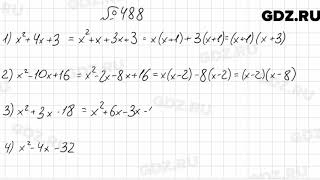 GDZ.RU
№488
1) x²+4x+3 = x²+x+3x+3 = x(x+1)+3(x+1)=(x+1)(x+3)
2) x²-10x+16 = x²-2x-8x+16 = x(x-2)-8(x-2)=(x-2)(x-8)
3) x²+3x-18 = x²+6x-3x-
4) x²-4x-32
GDZ.RU